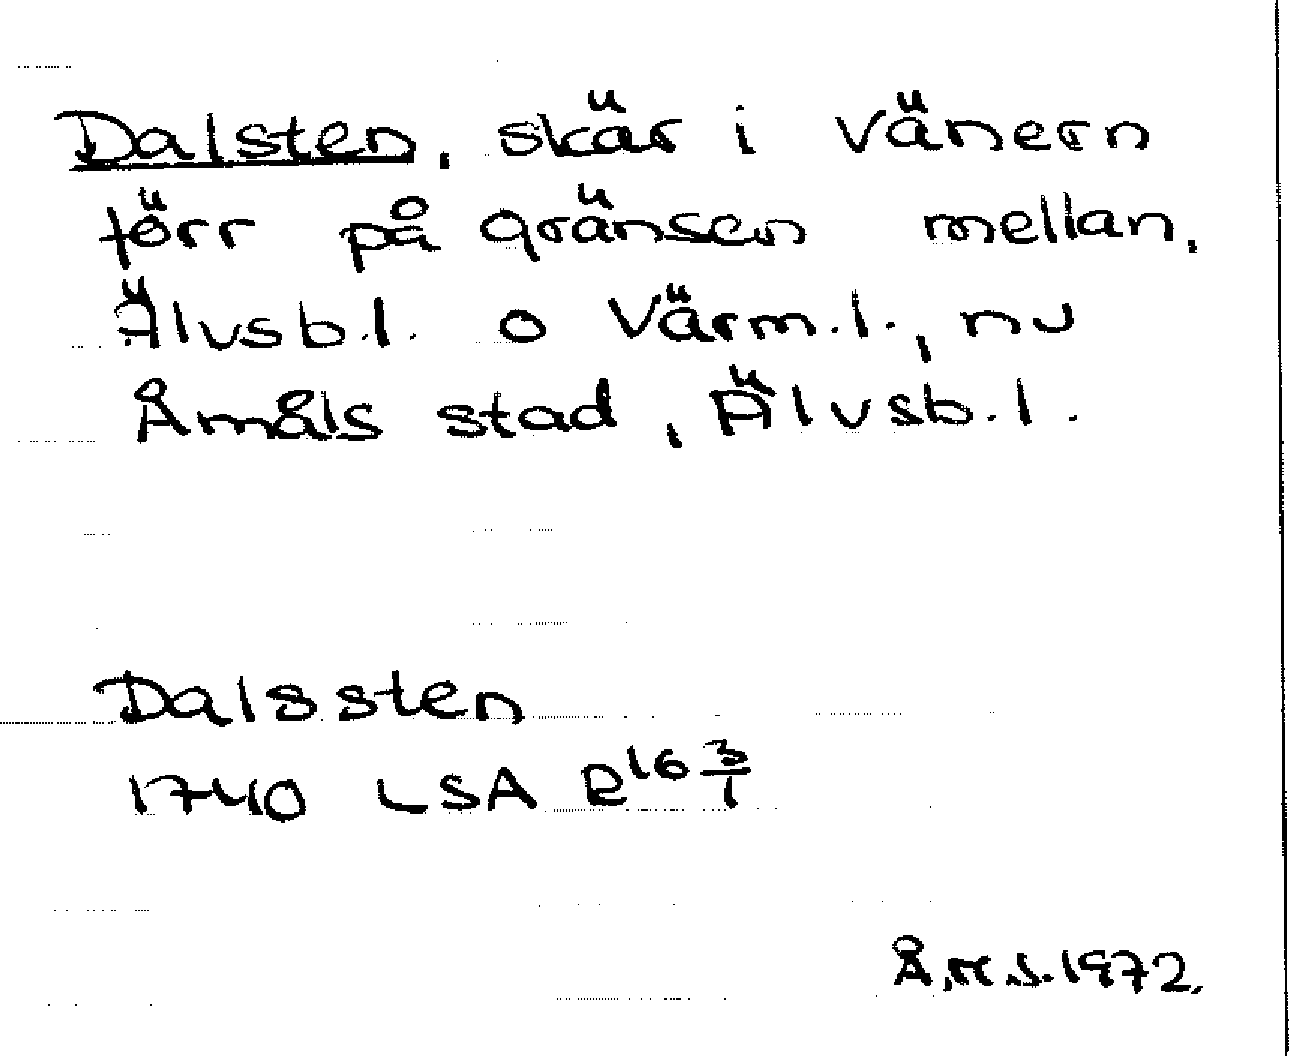 Dalsten, skär i Vänern
förr på gränsen mellan,
Älvsb.l. o Värm.l., nu
Åmåls stad, Älvsb.l.
Dalssten
1740 LSA R16 3/1
1972